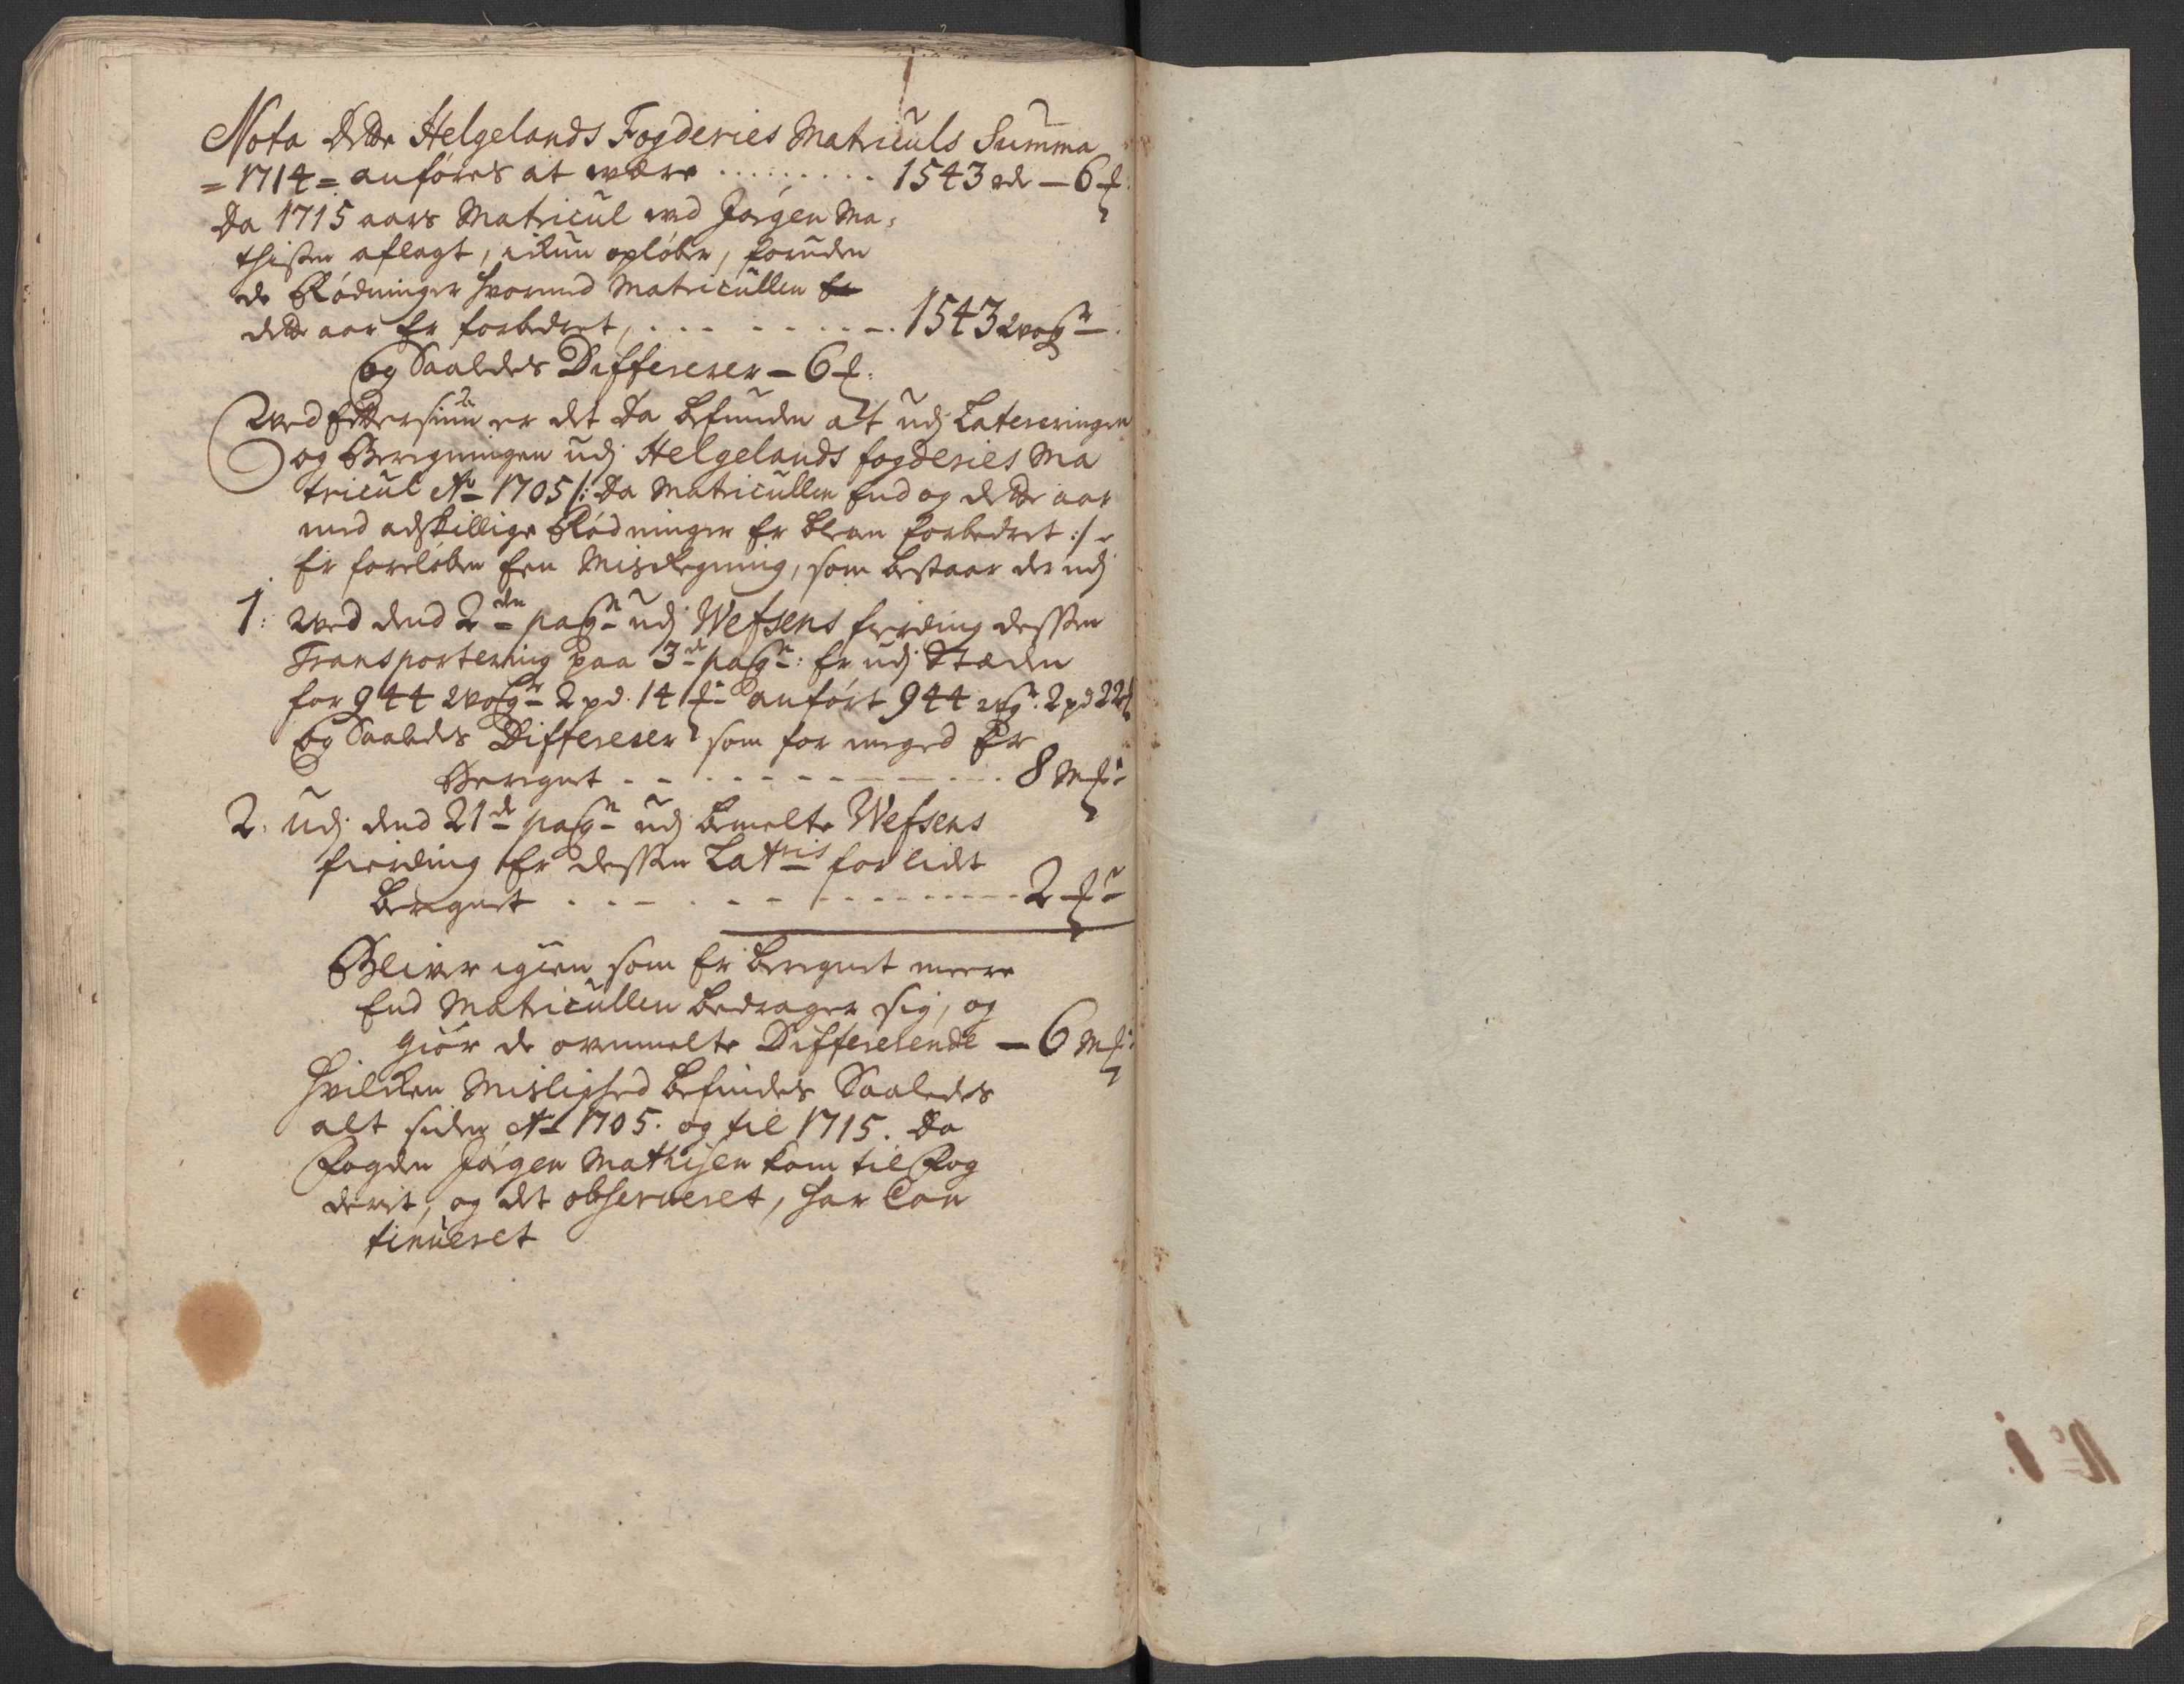 Nota Dette Helgelands Fogderies Matriculs Summa
= 1714 = anføres at være ......... 1543 — 6 ℔:
Da 1715 aars Matricul ved Jørgen Ma-
thisen aflagt, ickun opløber, foruden
de Rødninger hvormed Matricullen
dette aar Er forbedret, ......... 1543 voger
og Saaledes Differerer — 6 ℔:
Ved Eftersiun er det da befunden at udj Latereringen
og Beregningen udj Helgelands fogderies Ma
tricul Ao 1705 /: Da Matricullen End og dette aar
med adskillige Rødninger Er bleven forbedret :/
Er foreløben Een Misregning, som bestaar der udj
1: Ved dend 2den pag: udj Wefsens fierding dessen
Transportering paa 3de pag: Er udj Stæden
for 944 voger 2 pd. 14 ℔ anført 944 vog: 2 pd 22 ℔
og Saaledes Differerer som for meged Er
Beregnet ......... 8 m℔:
2: Udj dend 21de pag: udj bemelte Wefsens
fierding Er dessen Latris for lidet
beregnet ......... 2 ℔
Bliver igien som Er beregnet meere
End Matricullen bedrager sig, og
giør de ovenmelte Differerende — 6 m℔:
hvilcken Mislighed befindes Saaledes
alt siden Ao 1705. og til 1715. Da
Fogden Jørgen Mathisen kom til Fog
derit, og det observeret, har Con
tinueret
No 1.